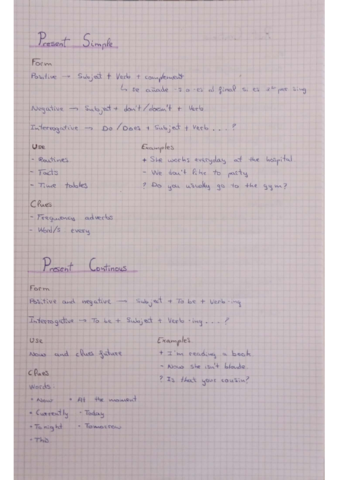 Present Simple
Form
Positive → Subject + Verb + complement
↳ se añade -s o -es al final si es 3ª per sing
Negative → Subject + don't/doesn't + Verb
Interrogative → Do/Does + Subject + Verb ...?
Use
Examples
- Routines
+ She works everyday at the hospital.
- Facts
- We don't like to party
- Time tables
? Do you usually go to the gym?
Clues
- Frequency adverbs
- Word/s every
Present Continous
Form
Positive and negative → Subject + To be + verb-ing
Interrogative → To be + Subject + Verb -ing ...?
Use
Examples
Now and future
+ I'm reading a book
- Now she isn't
Clues
? Is that your cousin?
Words
· Now · At the moment
· Currently · Today
· Tonight · Tomorrow
· This